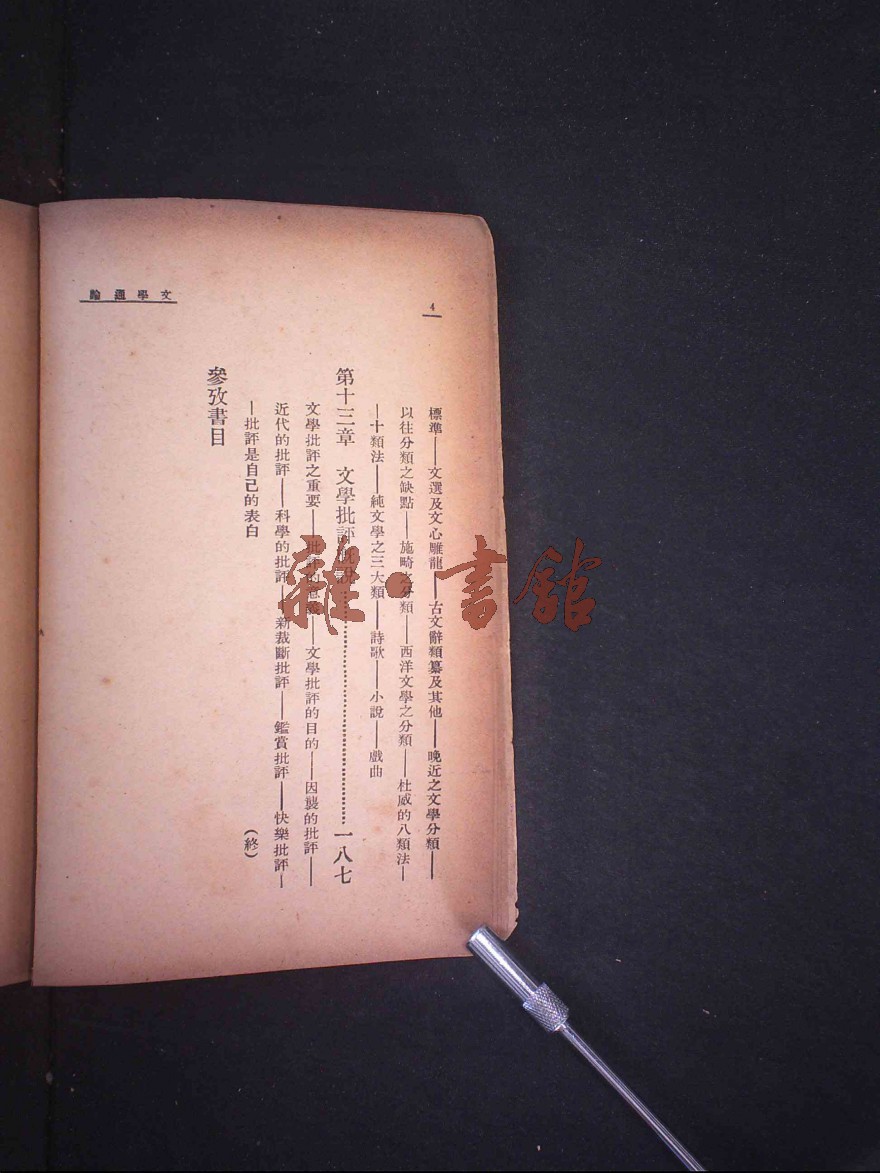 文學通論
4
標準——文選及文心雕龍——古文辭類纂及其他——晚近之文學分類——
以往分類之缺點——施畸之分類——西洋文學之分類——杜威的八類法—
—十類法——純文學之三大類——詩歌——小說——戲曲
第十三章　文學批評概說……………………一八七
文學批評之重要——批評的意義——文學批評的目的——因襲的批評——
近代的批評——科學的批評——新裁斷批評——鑑賞批評——快樂批評—
—批評是自己的表白
(終)
參攷書目
雜·書館